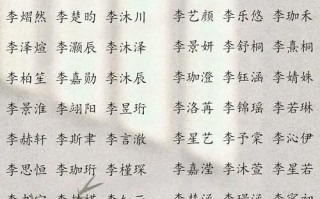 李熠然 李楚昀 李沐川 李艺颜 李乐悠 李珈禾
李泽煊 李灏辰 李沐泽 李景妍 李舒桐 李熹桐
李柏笙 李嘉勋 李沐辰 李珈澄 李钰涵 李婧姝
李景淮 李翊阳 李昱珩 李洛苒 李锦瑶 李若琳
李赫轩 李斯聿 李言澈 李星艺 李予棠 李沁伊
李思恒 李珈珩 李槿琛 李嘉滢 李沐萱 李星若